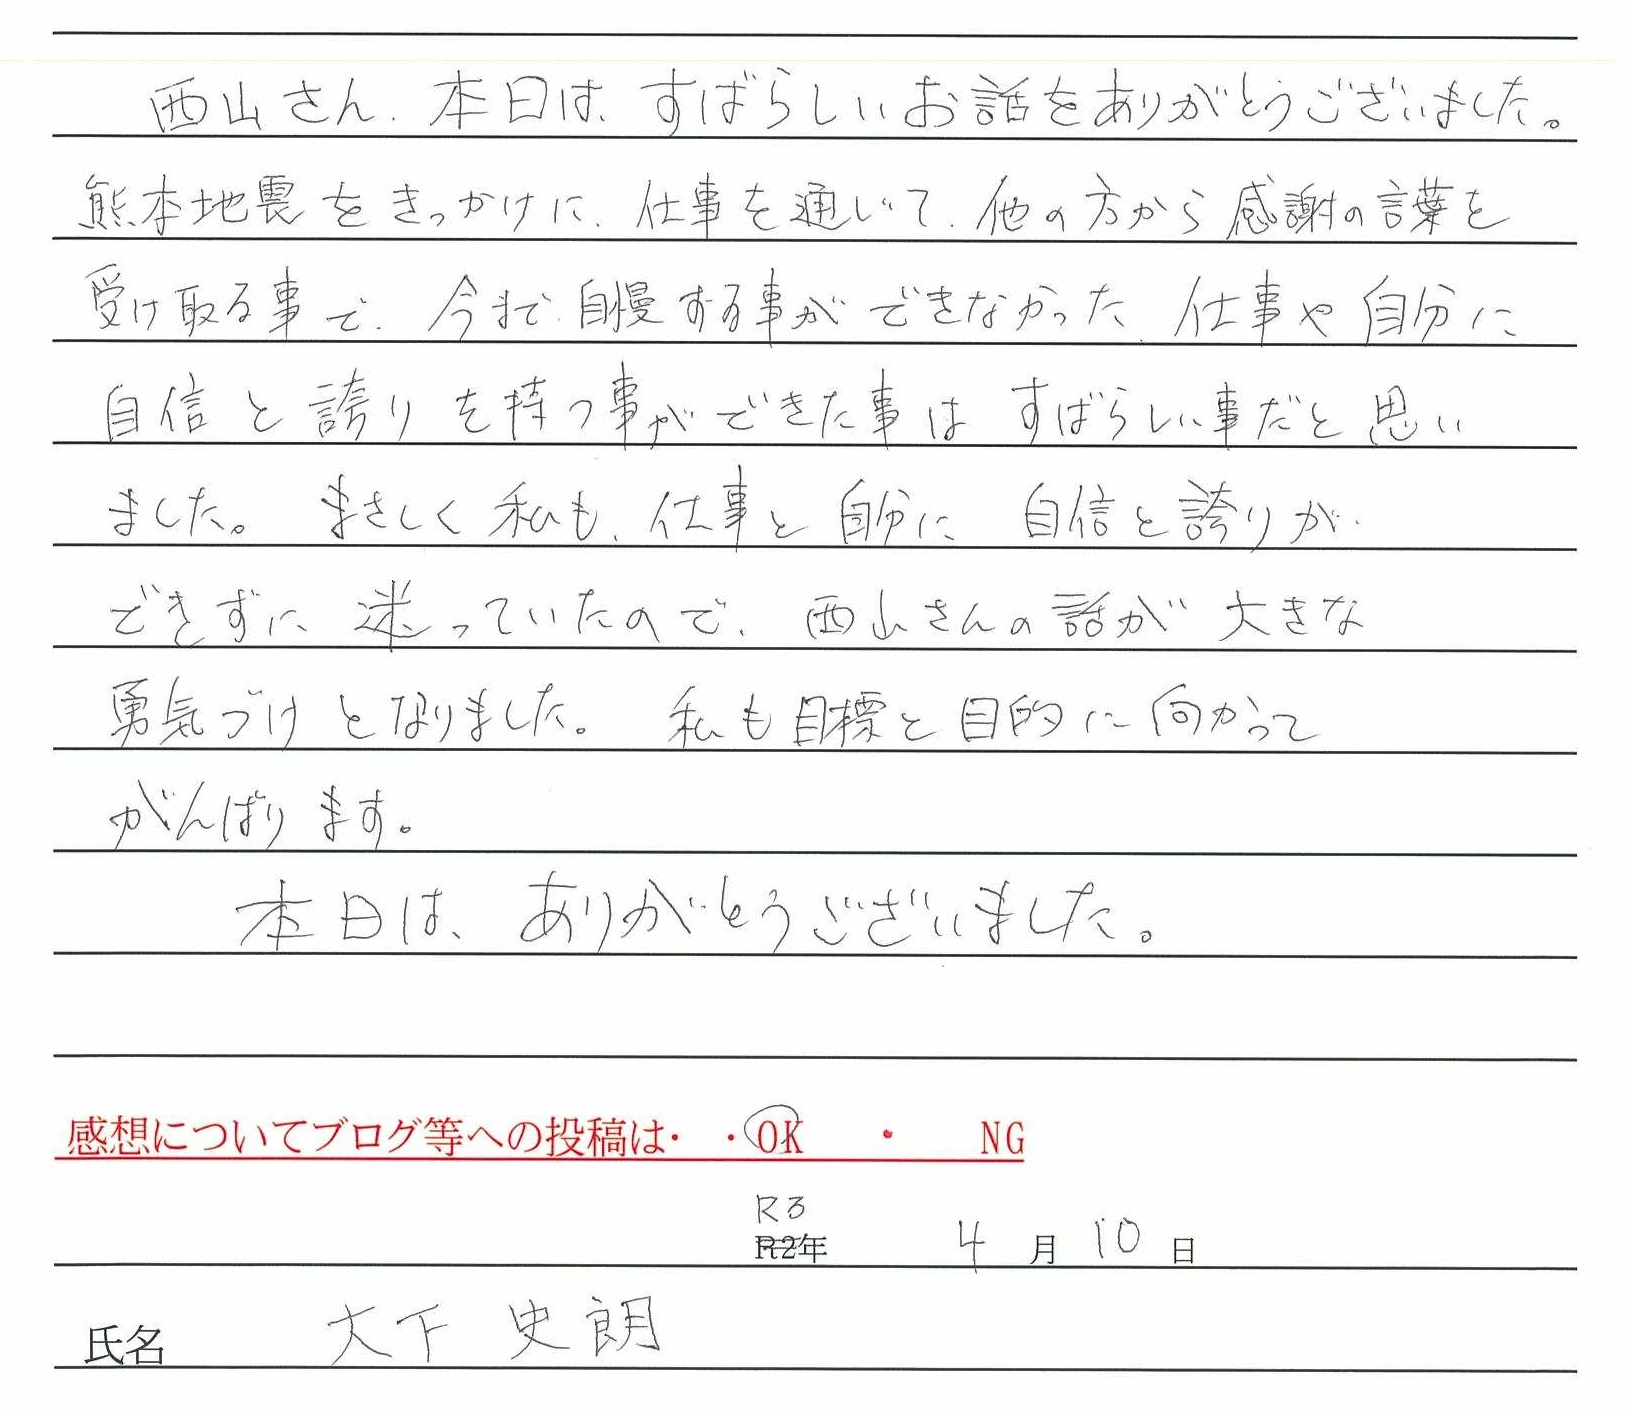 西山さん、本日は、すばらしいお話をありがとうございました。
熊本地震をきっかけに、仕事を通じて、他の方から感謝の言葉を
受け取る事で、今まで自慢する事ができなかった、仕事や自分に
自信と誇りを持つ事ができた事はすばらしい事だと思い
ました。まさしく私も、仕事と自分に自信と誇りが
できずに迷っていたので、西山さんの話が大きな
勇気づけとなりました。私も目標と目的に向かって
がんばります。
本日は、ありがとうございました。
感想についてブログ等への投稿は・・OK ・ NG
R3
R2年 4月10日
氏名 大下 史朗